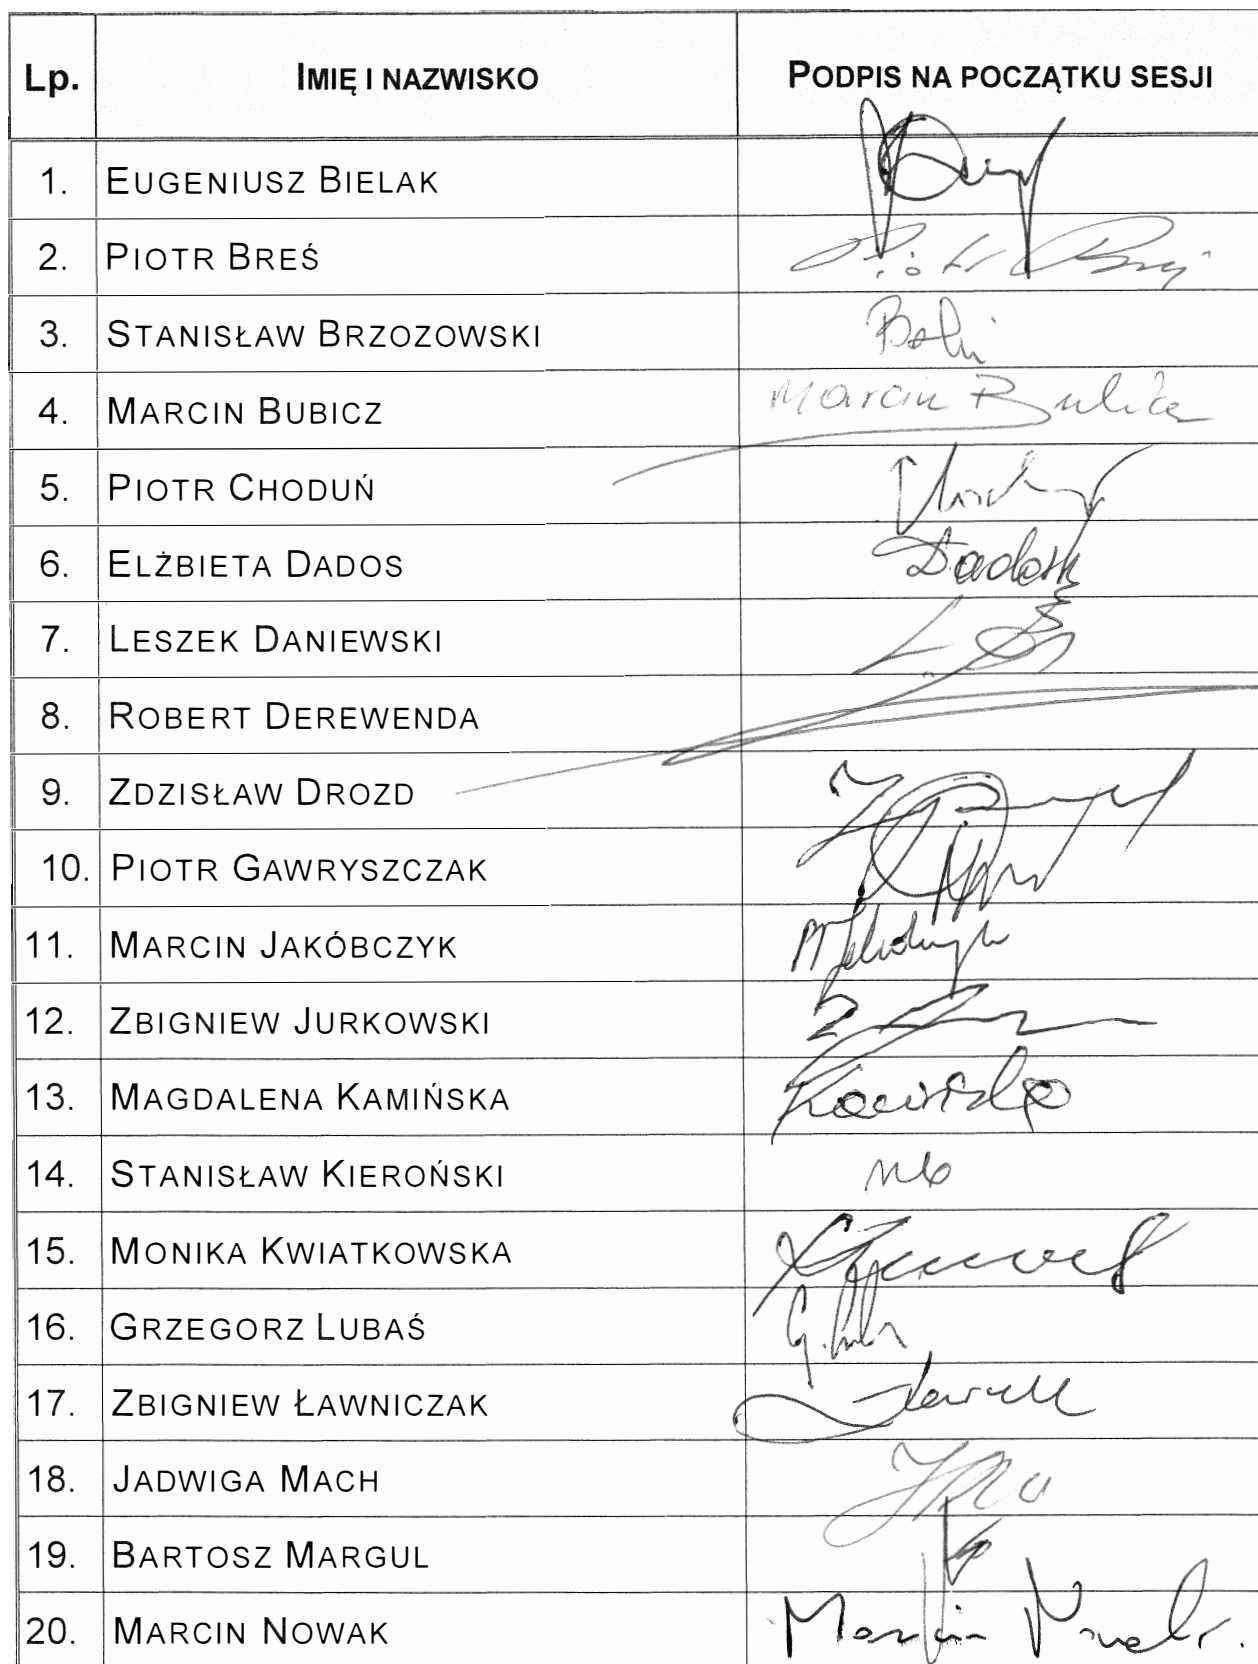 Lp. IMIĘ I NAZWISKO PODPIS NA POCZĄTKU SESJI
1. EUGENIUSZ BIELAK
2. PIOTR BREŚ Piotr Breś
3. STANISŁAW BRZOZOWSKI
4. MARCIN BUBICZ Marcin Bubicz
5. PIOTR CHODUŃ
6. ELŻBIETA DADOS Dados
7. LESZEK DANIEWSKI
8. ROBERT DEREWENDA
9. ZDZISŁAW DROZD
10. PIOTR GAWRYSZCZAK
11. MARCIN JAKÓBCZYK
12. ZBIGNIEW JURKOWSKI
13. MAGDALENA KAMIŃSKA
14. STANISŁAW KIEROŃSKI nb
15. MONIKA KWIATKOWSKA
16. GRZEGORZ LUBAŚ
17. ZBIGNIEW ŁAWNICZAK
18. JADWIGA MACH
19. BARTOSZ MARGUL
20. MARCIN NOWAK Marcin Nowak